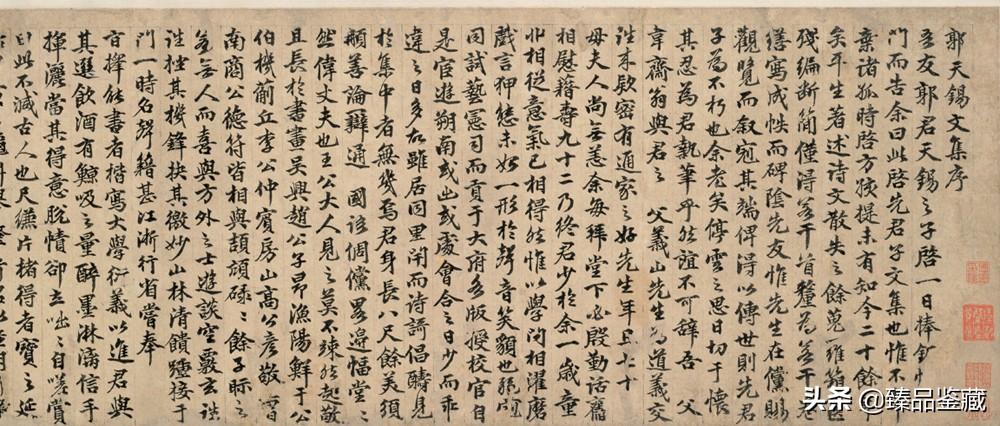 郭天錫文集序
吾友郭君天錫之子啓一日捧
門而告余曰此啓先君子文集也惟不
棄諸孤時啓方孩提未有知今二十餘
矣平生著述詩文散失之餘蒐
殘編斷簡僅得若干首釐為若干
繕寫成帙而碑陰先友惟先生在儻賜
觀覽而叙冠其端俾得以傳世則先君
子為不朽也余老矣停雲之思日切于懷
其忍為君執筆乎然誼不可辭吾 父
韋齋翁與君之 父義山先生為道義交
往來欵密有通家之好先生年且七十
母夫人尚無恙余每拜堂下必殷勤話舊
相慰藉壽九十二乃終君少於余一歲童
丱相從意氣已相得然惟以學問相濯磨
戲言狎態未始一形於聲音笑貌也
同試藝憲司而貢于大府多版授校官自
是宦遊朔南或出或處會合之日少而乖
違之日多在雖居同里閈而詩詩倡酬見
於集中者無幾焉君身長八尺餘美須
髯善論辯通 國語倜儻畧邊幅堂堂
然偉丈夫也王公大人見之莫不竦然起敬
且長於書畫吳興趙公子昂漁陽鮮于公
伯機薊丘李公仲賓房山高公彦敬
南商公德符皆相與頡頏碌碌餘子眎之
無人而喜與方外之士遊談空覈玄
往挫其機鋒抉其微妙山林清饋踵接于
門一時名聲籍甚江浙行省嘗奉
旨擇能書者楷寫大學衍義以進君與
其選飲酒有鯨吸之量醉墨淋漓信手
揮灑當其得意脫幘卻立咄咄自嘆賞
曰此不減古人也尺縑片楮得者寶之
头条 @臻品鉴藏